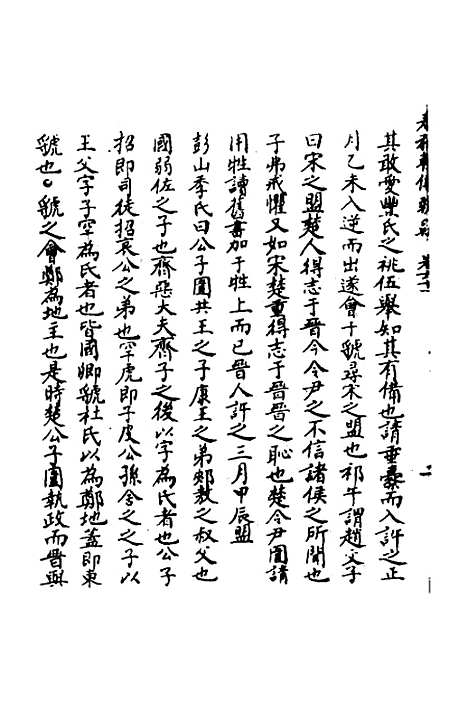 其敢愛豐氏之祧伍舉知其有備也請垂櫜而入許之正
月乙未入逆而出遂會于虢尋宋之盟也祁午謂趙文子
曰宋之盟楚人得志于晉今令尹之不信諸侯之所聞也
子弗戒懼又如宋楚重得志于晉晉之恥也楚令尹圍請
用牲讀舊書加于牲上而已晉人許之三月甲辰盟
彭山季氏曰公子圍共王之子康王之弟郟敖之叔父也
國弱佐之子也齊惡大夫齊子之後以字為氏者也公子
招即司徒招哀公之弟也罕虎即子皮公孫舍之之子以
王父字子罕為氏者也皆國卿虢杜氏以為鄭地蓋即東
虢也。虢之會鄭為地主也是時楚公子圍執政而晉與